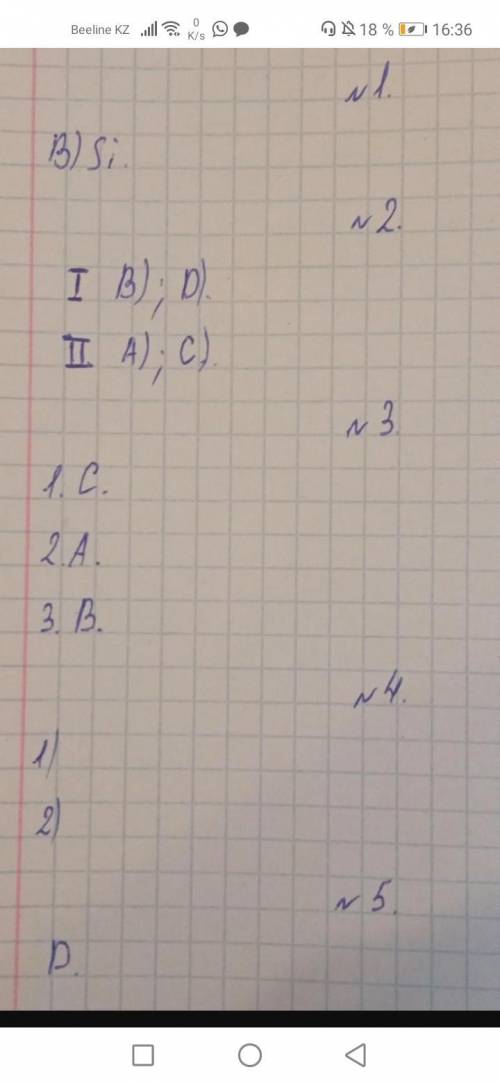 Beeline KZ 0 K/s 18 % 16:36
№1.
B) Si.
№2.
I B); D).
II A); C).
№3
1. C.
2. A.
3. B.
№4.
1)
2)
№5.
D.